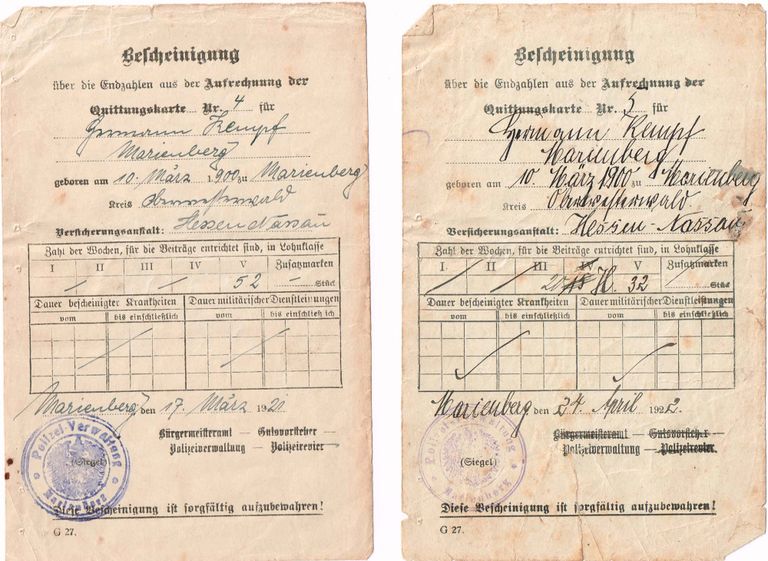 Bescheinigung
über die Endzahlen aus der Aufrechnung der
Quittungskarte Nr. 4 für
Hermann Kempf
Marienberg
geboren am 10. März 1900 zu Marienberg
Kreis Oberwesterwald
Versicherungsanstalt: Hessen Nassau
Zahl der Wochen, für die Beiträge entrichtet sind, in Lohnklasse
I II III IV V Zusatzmarken
52 Stück
Dauer bescheinigter Krankheiten Dauer militärischer Dienstleistungen
vom bis einschließlich vom bis einschließlich
Marienberg den 17. März 1921
Bürgermeisteramt — Gutsvorsteher
Polizeiverwaltung — Polizeirevier
Polizei-Verwaltung
Marienberg
(Siegel)
Diese Bescheinigung ist sorgfältig aufzubewahren!
G 27.
Bescheinigung
über die Endzahlen aus der Aufrechnung der
Quittungskarte Nr. 5 für
Hermann Kempf
Marienberg
geboren am 10. März 1900 zu Marienberg
Kreis Oberwesterwald.
Versicherungsanstalt: Hessen-Nassau
Zahl der Wochen, für die Beiträge entrichtet sind, in Lohnklasse
I II III IV V Zusatzmarken
20 32 Stück
Dauer bescheinigter Krankheiten Dauer militärischer Dienstleistungen
vom bis einschließlich vom bis einschließlich
Marienberg den 24. April 1922
Bürgermeisteramt — Gutsvorsteher
Polizeiverwaltung — Polizeirevier
(Siegel)
Diese Bescheinigung ist sorgfältig aufzubewahren!
G 27.